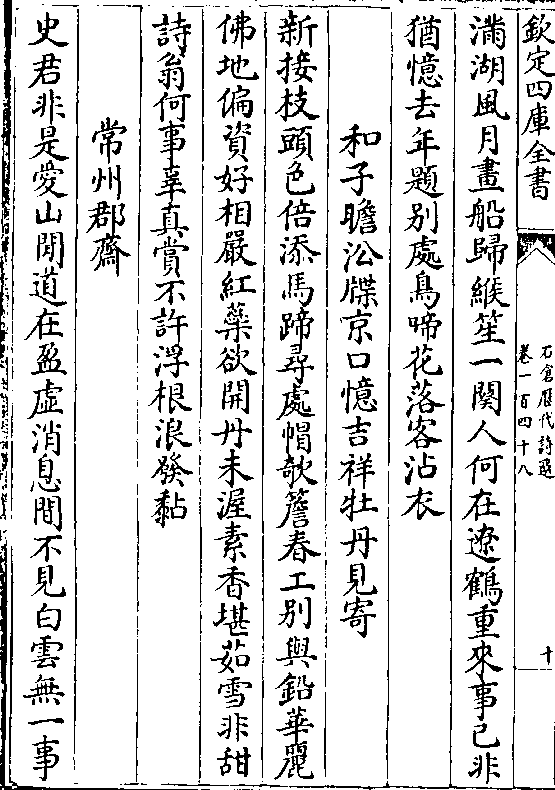 欽定四庫全書
石倉歷代詩選
卷一百四十八
十
滿湖風月畫船歸緱笙一闋人何在遼鶴重來事已非
猶憶去年題別處鳥啼花落客沾衣
和子瞻沿牒京口憶吉祥牡丹見寄
新接枝頭色倍添馬蹄尋處帽欹簷春工別與鉛華麗
佛地偏資好相嚴紅蘂欲開丹未渥素香堪茹雪非甜
詩翁何事辜真賞不許浮根浪發黏
常州郡齋
史君非是愛山閒道在盈虛消息間不見白雲無一事